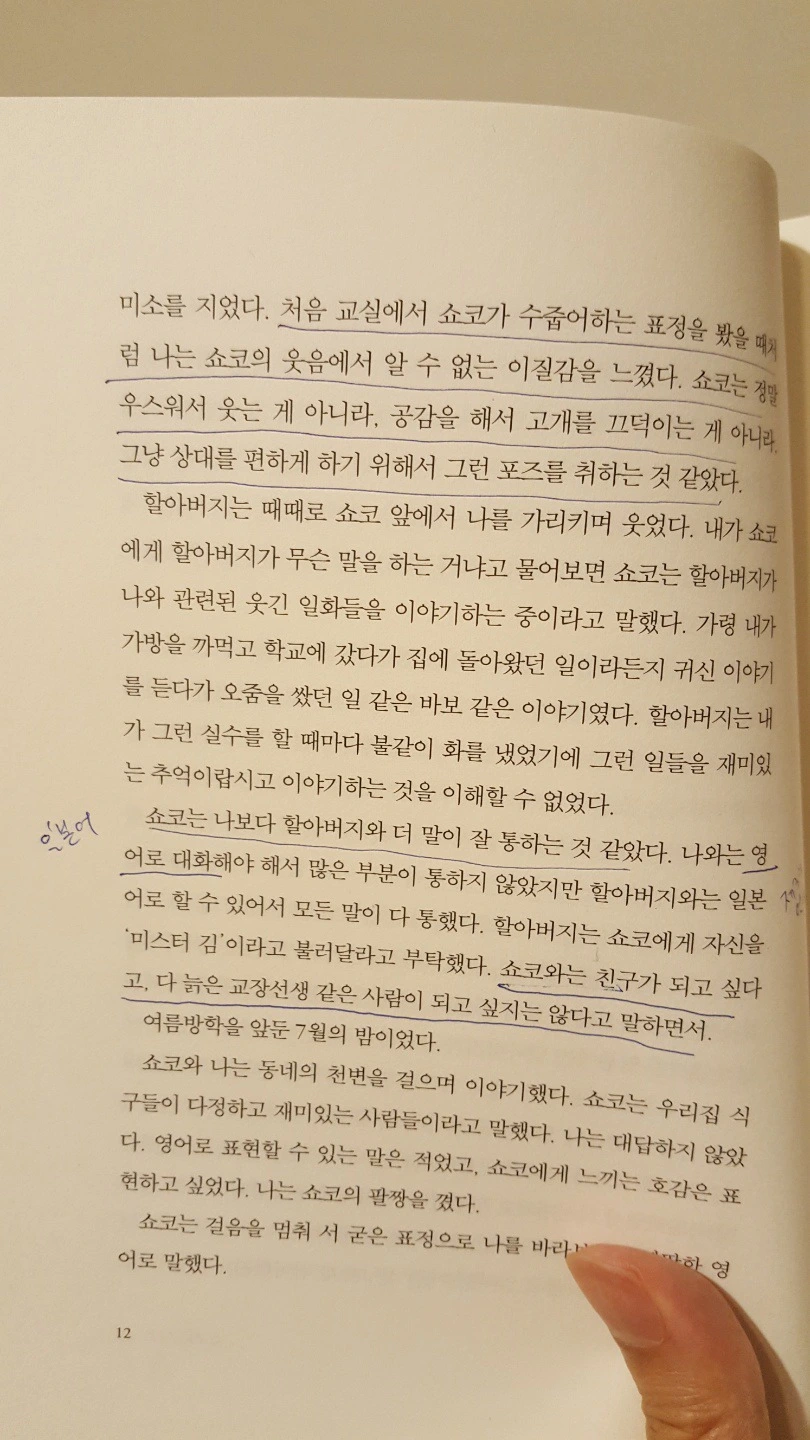 미소를 지었다. 처음 교실에서 쇼코가 수줍어하는 표정을 봤을 때처
럼 나는 쇼코의 웃음에서 알 수 없는 이질감을 느꼈다. 쇼코는 정말
우스워서 웃는 게 아니라, 공감을 해서 고개를 끄덕이는 게 아니라,
그냥 상대를 편하게 하기 위해서 그런 포즈를 취하는 것 같았다.
할아버지는 때때로 쇼코 앞에서 나를 가리키며 웃었다. 내가 쇼코
에게 할아버지가 무슨 말을 하는 거냐고 물어보면 쇼코는 할아버지가
나와 관련된 웃긴 일화들을 이야기하는 중이라고 말했다. 가령 내가
가방을 까먹고 학교에 갔다가 집에 돌아왔던 일이라든지 귀신 이야기
를 듣다가 오줌을 쌌던 일 같은 바보 같은 이야기였다. 할아버지는 내
가 그런 실수를 할 때마다 불같이 화를 냈었기에 그런 일들을 재미있
는 추억이랍시고 이야기하는 것을 이해할 수 없었다.
쇼코는 나보다 할아버지와 더 말이 잘 통하는 것 같았다. 나와는 영
일본어
어로 대화해야 해서 많은 부분이 통하지 않았지만 할아버지와는 일본
어로 할 수 있어서 모든 말이 다 통했다. 할아버지는 쇼코에게 자신을
'미스터 김'이라고 불러달라고 부탁했다. 쇼코와는 친구가 되고 싶다
고, 다 늙은 교장선생 같은 사람이 되고 싶지는 않다고 말하면서.
여름방학을 앞둔 7월의 밤이었다.
쇼코와 나는 동네의 천변을 걸으며 이야기했다. 쇼코는 우리집 식
구들이 다정하고 재미있는 사람들이라고 말했다. 나는 대답하지 않았
다. 영어로 표현할 수 있는 말은 적었고, 쇼코에게 느끼는 호감은 표
현하고 싶었다. 나는 쇼코의 팔짱을 꼈다.
쇼코는 걸음을 멈춰 서 굳은 표정으로 나를 영
어로 말했다.
12